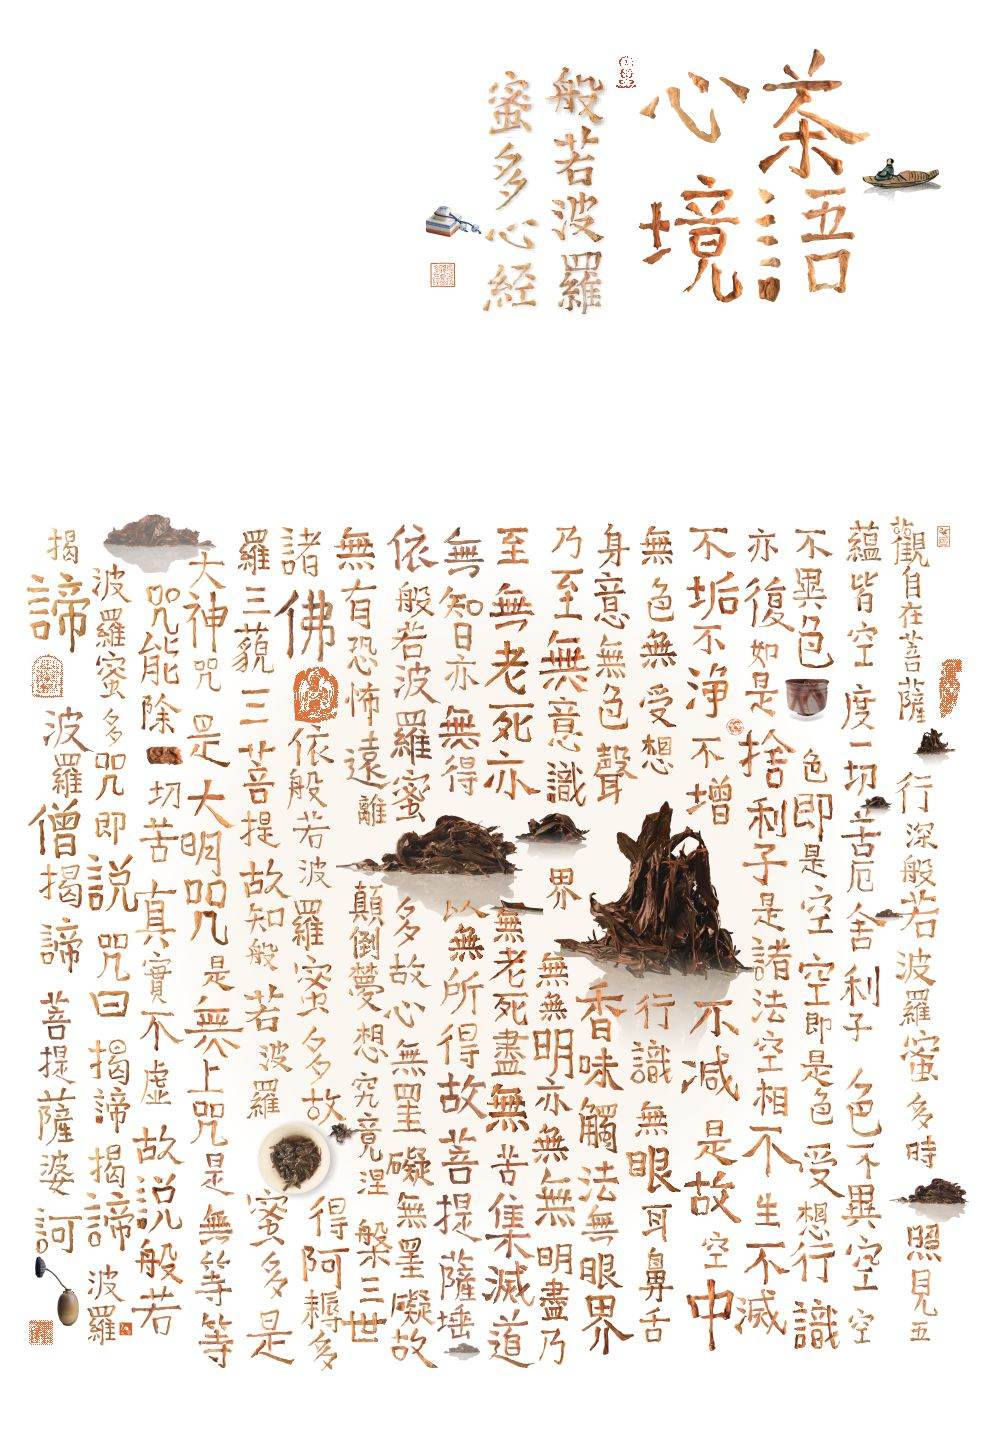 茶語
心境
般若波羅
蜜多心経
觀自在菩薩行深般若波羅蜜多時照見五
蘊皆空度一切苦厄舍利子色不異空空
不異色色即是空空即是色受想行識
亦復如是捨利子是諸法空相不生不滅
不垢不淨不增不減是故空中
無色無受想行識無眼耳鼻舌
身意無色聲香味觸法無眼界
乃至無意識界無無明亦無無明盡乃
至無老死亦無老死盡無苦集滅道
無智亦無得以無所得故菩提薩埵
依般若波羅蜜多故心無罣礙無罣礙故
無有恐怖遠離顛倒夢想究竟涅槃三世
諸佛依般若波羅蜜多故得阿耨多
羅三藐三菩提故知般若波羅蜜多是
大神咒是大明咒是無上咒是無等等
咒能除一切苦真實不虛故説般若
波羅蜜多咒即説咒曰揭諦揭諦波羅
揭諦波羅僧揭諦菩提薩婆訶